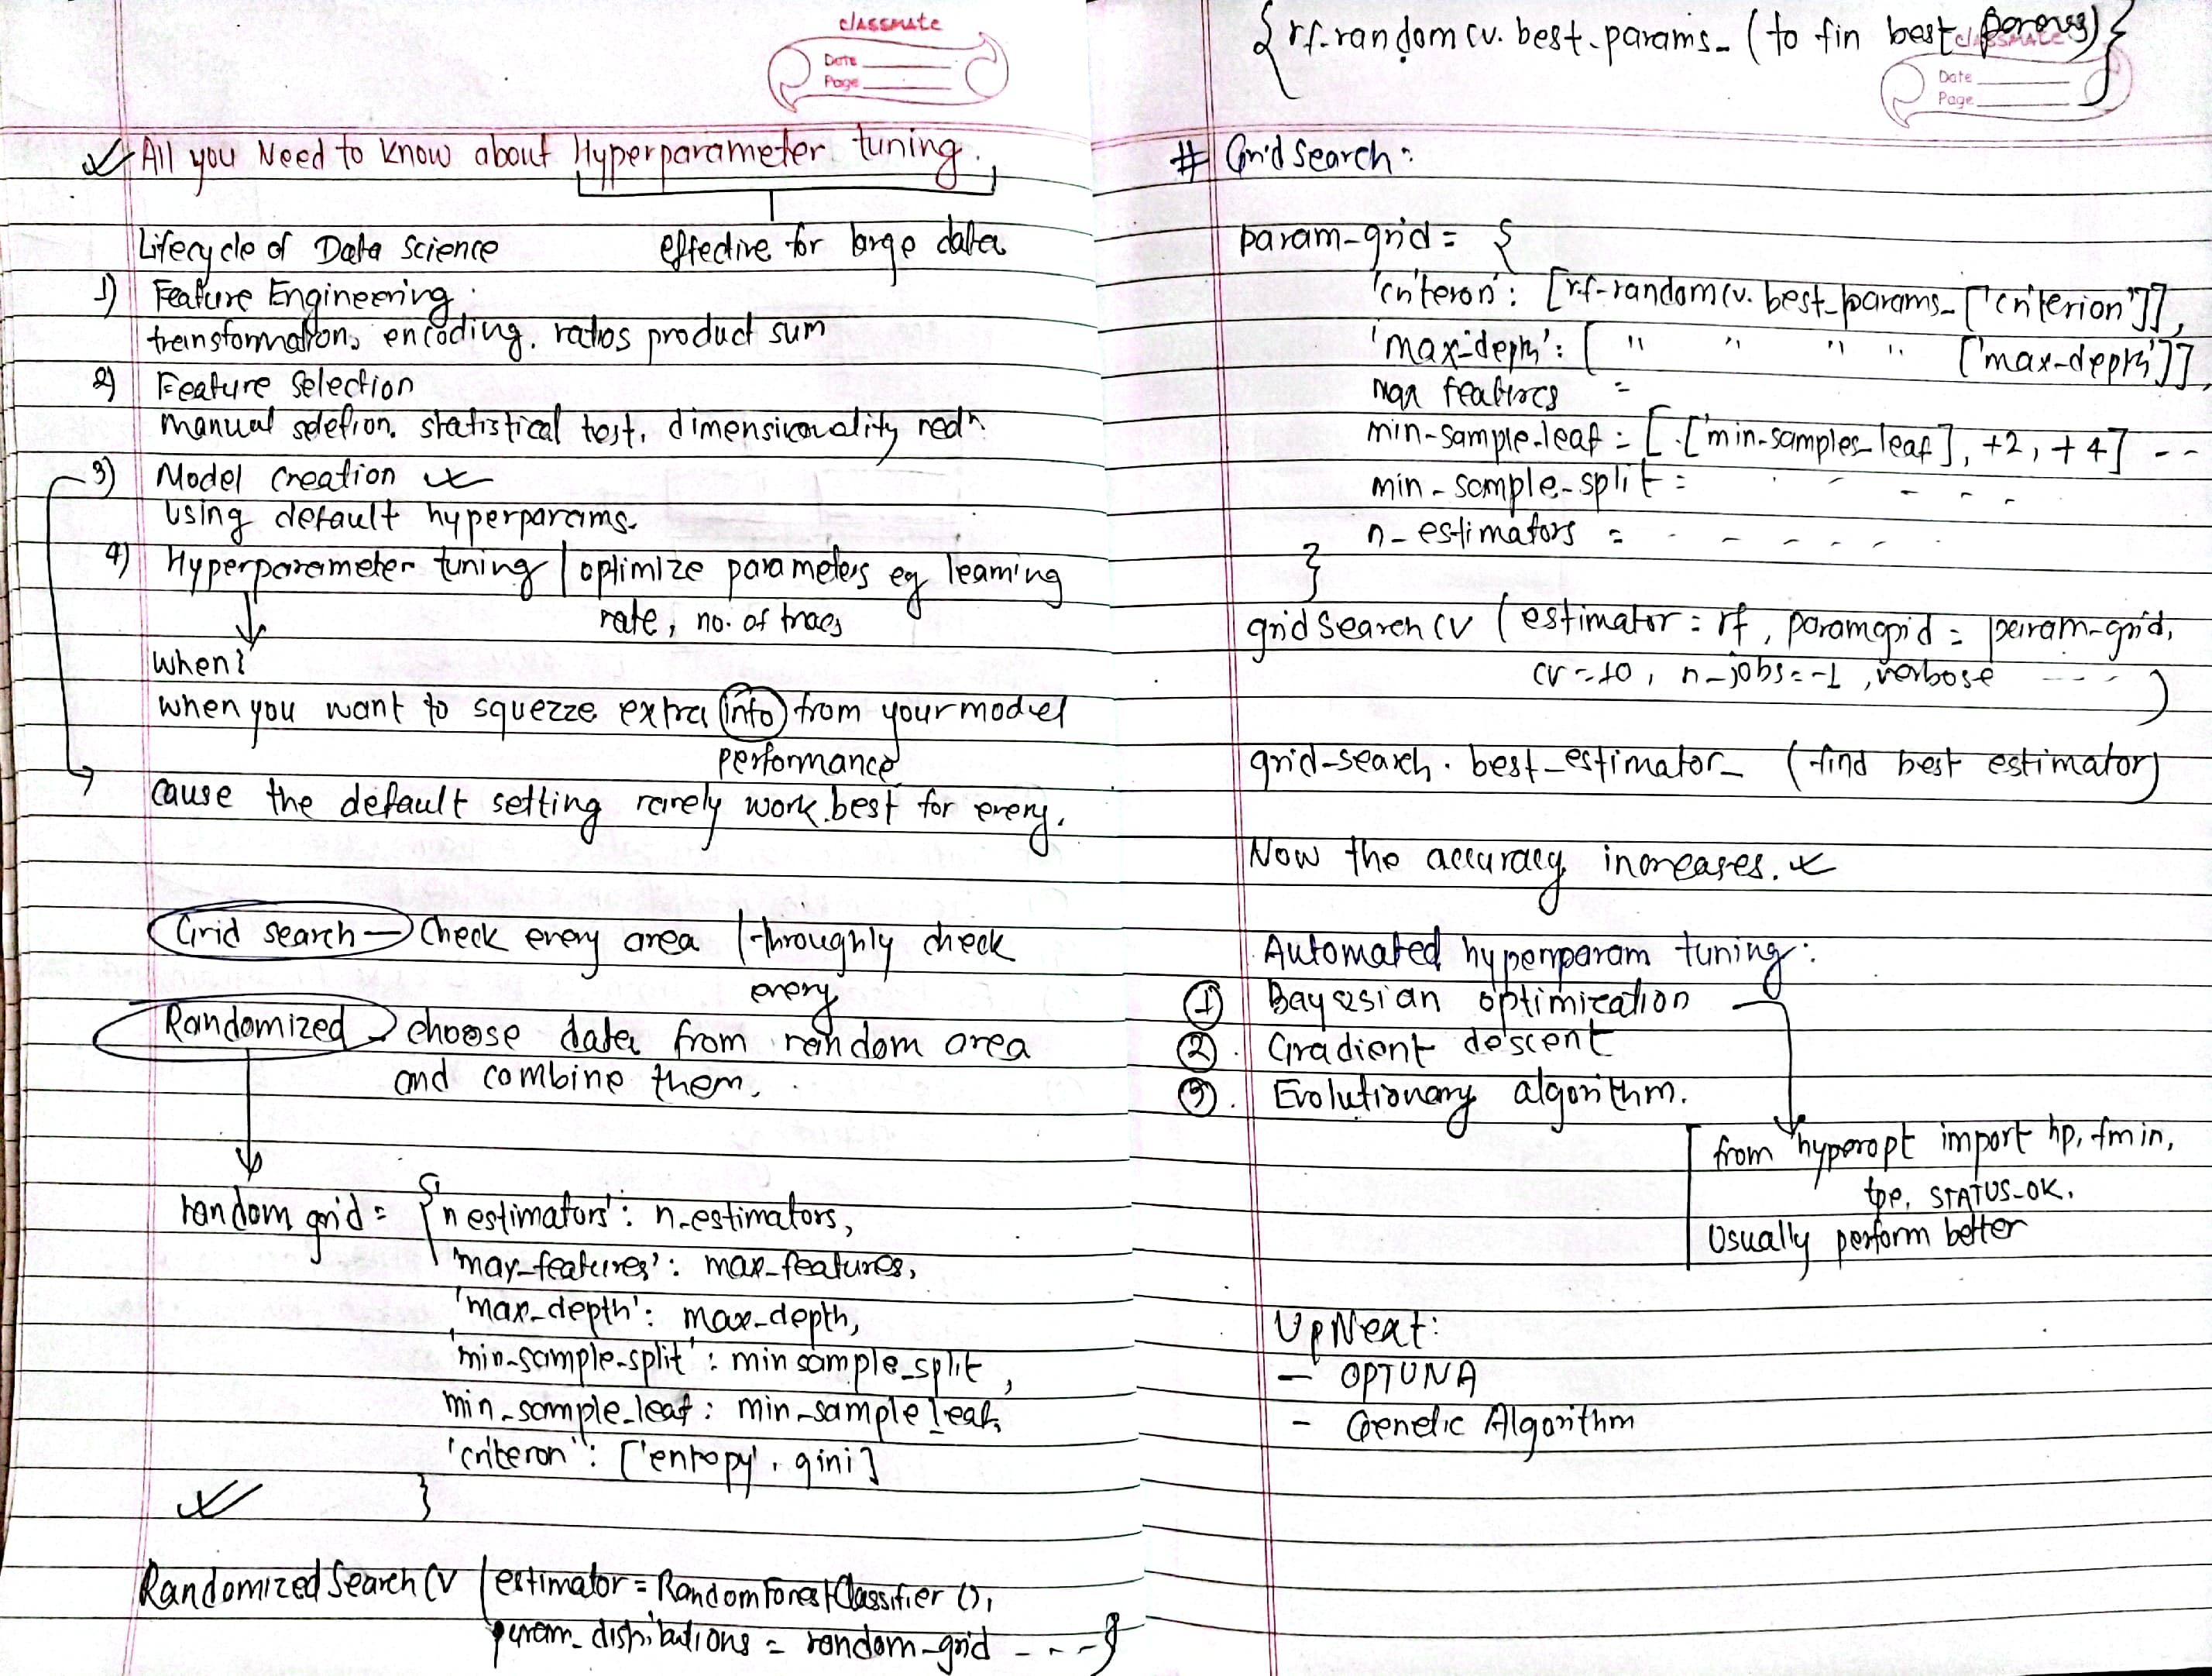 classmate
Date
Page
All you Need to know about Hyperparameter tuning.
Lifecycle of Data Science
effective for large data
1) Feature Engineering:
transformation, encoding, ratios product sum
2) Feature Selection
manual seletion. statistical test, dimensionality redn
3) Model Creation
Using default hyperparams.
4) Hyperparameter tuning | optimize parameters eg learning
rate, no. of trees
when?
when you want to squezze extra info from your model
performance
cause the default setting rarely work best for every.
Grid search – Check every area | throughly check
every
Randomized choose data from random area
and combine them.
random grid = { 'n estimators': n_estimators,
'max_features': max_features,
'max_depth': max_depth,
'min_sample_split': min sample_split,
min_sample_leaf: min_sample leaf,
'criteron': ['entropy', gini]
}
RandomizedSearchCV (estimator = RandomForestClassifier (),
param_distributions = random_grid - - - }
{ rf-randomcv. best_params_ (to fin best params) }
classmate
Date
Page
# Grid Search:
param-grid = {
'criteron': [rf-randomcv. best_params_ ['criterion']],
'max-depth': [ " " " " ['max-depth']],
max features =
min-sample-leaf = [ . ['min-samples_leaf], +2, +4] - -
min-sample-split = - - - -
n-estimators = - - - - - -
}
gridSearchCV (estimator = rf, paramgrid = param-grid,
cv=10, n-jobs=-1, verbose - - - )
grid-search. best_estimator_ (find best estimator)
Now the accuracy increases.
Automated hyperparam tuning:
1 Bayesian optimization
2. Gradient descent
3. Evolutionary algorithm.
from hyperopt import hp, fmin,
tpe, STATUS_OK.
Usually perform better
UpNext:
– OPTUNA
– Genetic Algorithm